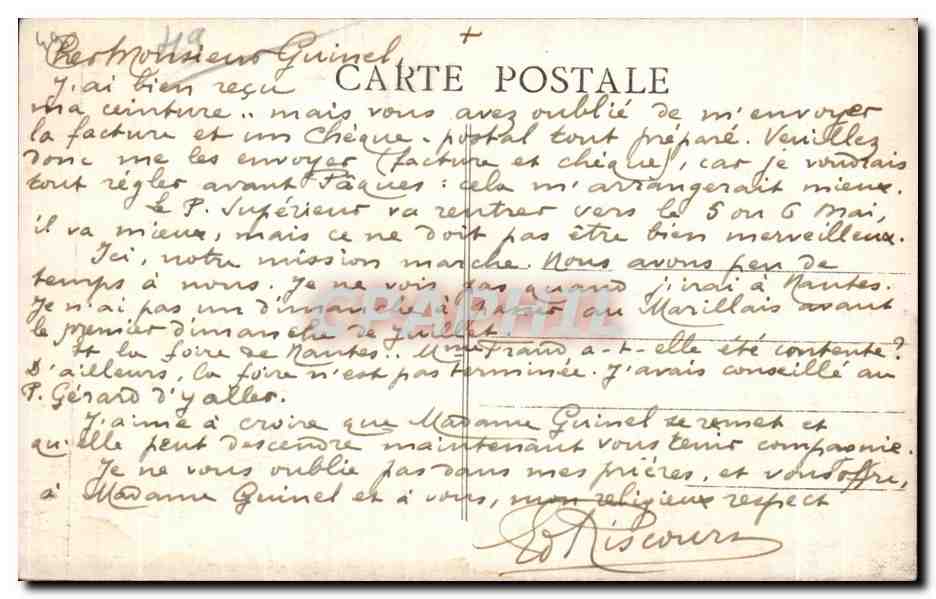 +
49
Cher Monsieur Guinel,
CARTE POSTALE
J'ai bien reçu
ma ceinture.. mais vous avez oublié de m'envoyer
la facture et un chèque-postal tout préparé. Veuillez
donc me les envoyer (facture et chèque), car je voudrais
tout régler avant Pâques : cela m'arrangerait mieux.
Le P. Supérieur va rentrer vers le 5 ou 6 Mai,
il va mieux, mais ce ne doit pas être bien merveilleux.
Ici, notre mission marche. Nous avons peu de
temps à nous. Je ne vois pas quand j'irai à Nantes.
Je n'ai pas un dimanche à passer au Marillais avant
le premier dimanche de Juillet.
Et la foire de Nantes.. Mme Frand a-t-elle été contente ?
D'ailleurs, la foire n'est pas terminée. J'avais conseillé au
P. Gérard d'y aller.
J'aime à croire que Madame Guinel se remet et
qu'elle peut descendre maintenant vous tenir compagnie.
Je ne vous oublie pas dans mes prières, et vous offre,
à Madame Guinel et à vous, mon religieux respect
Ed Riscours
CPAPHIL